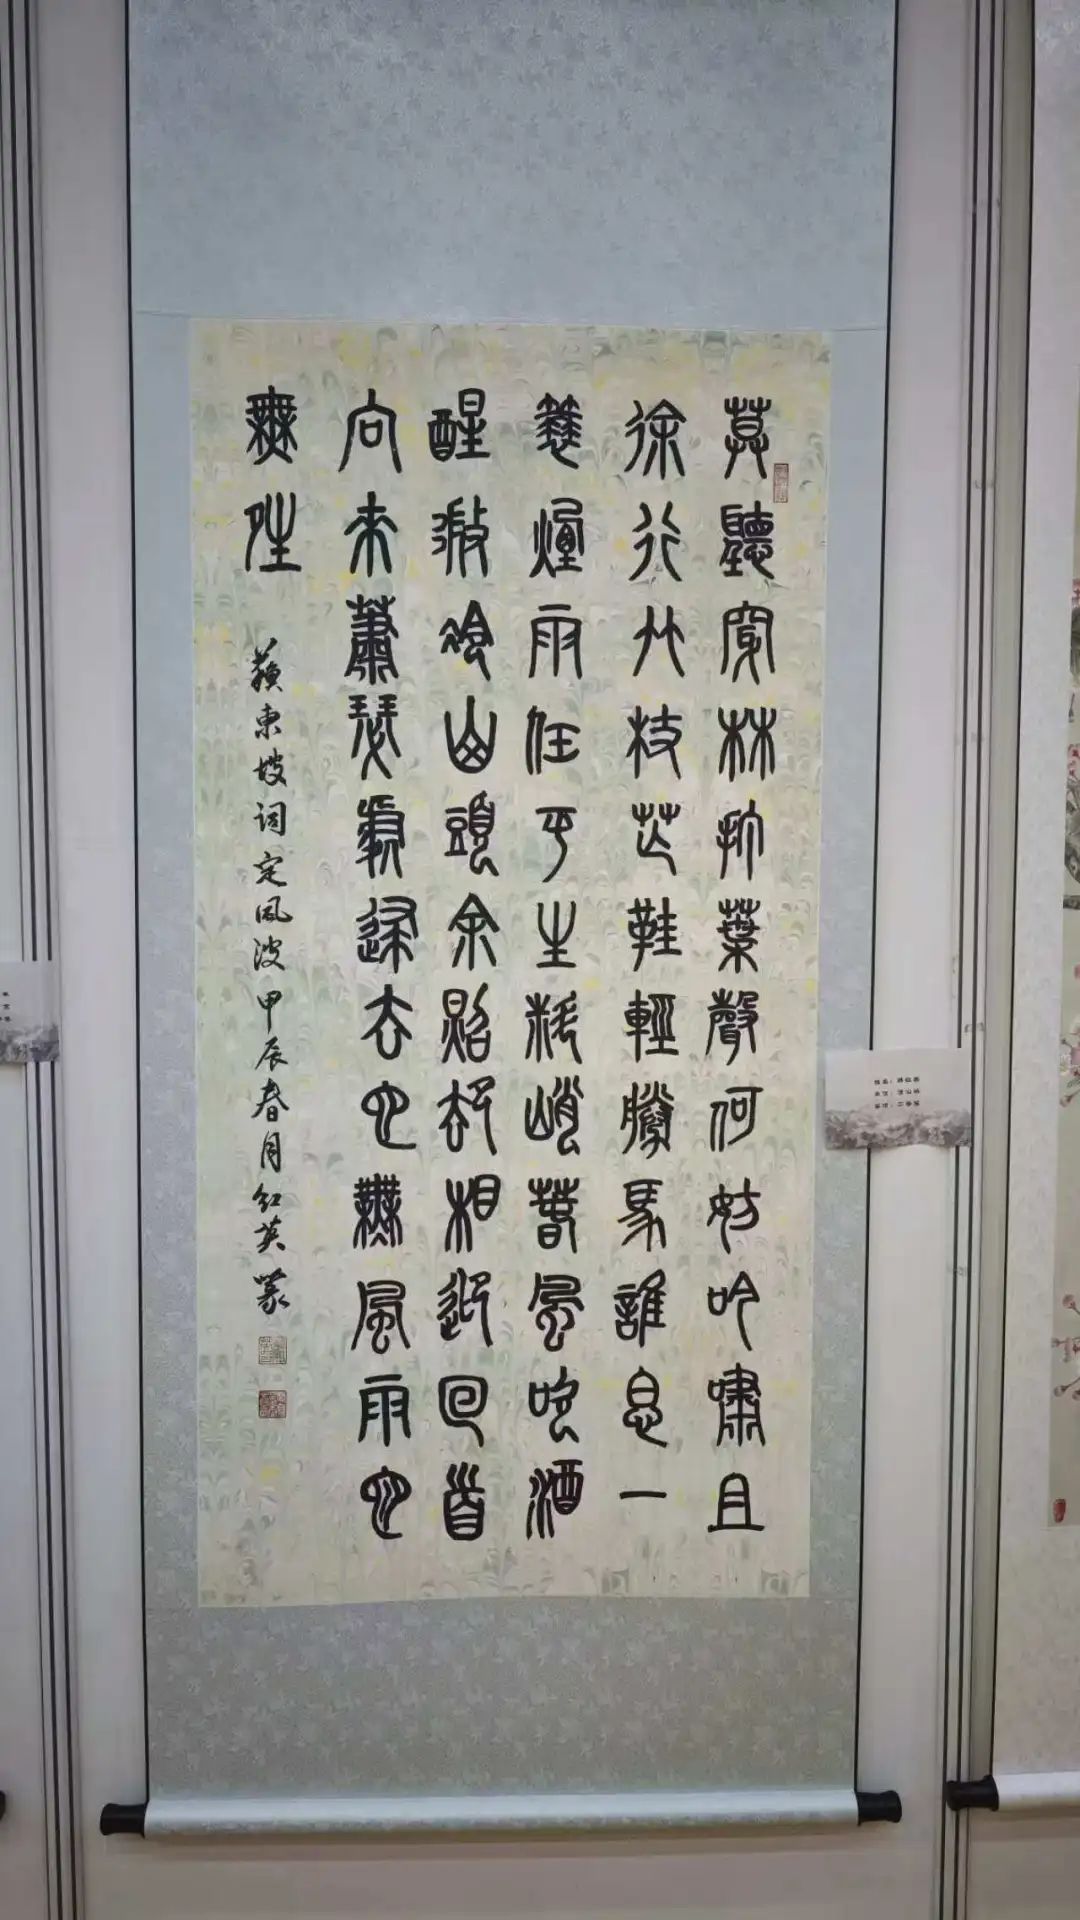 莫聽穿林打葉聲何妨吟嘯且
徐行竹杖芒鞋輕勝馬誰怕一
蓑煙雨任平生料峭春風吹酒
醒微冷山頭余照卻相迎回首
向來蕭瑟處歸去也無風雨也
無晴
蘇東坡詞定風波甲辰春月紅英篆